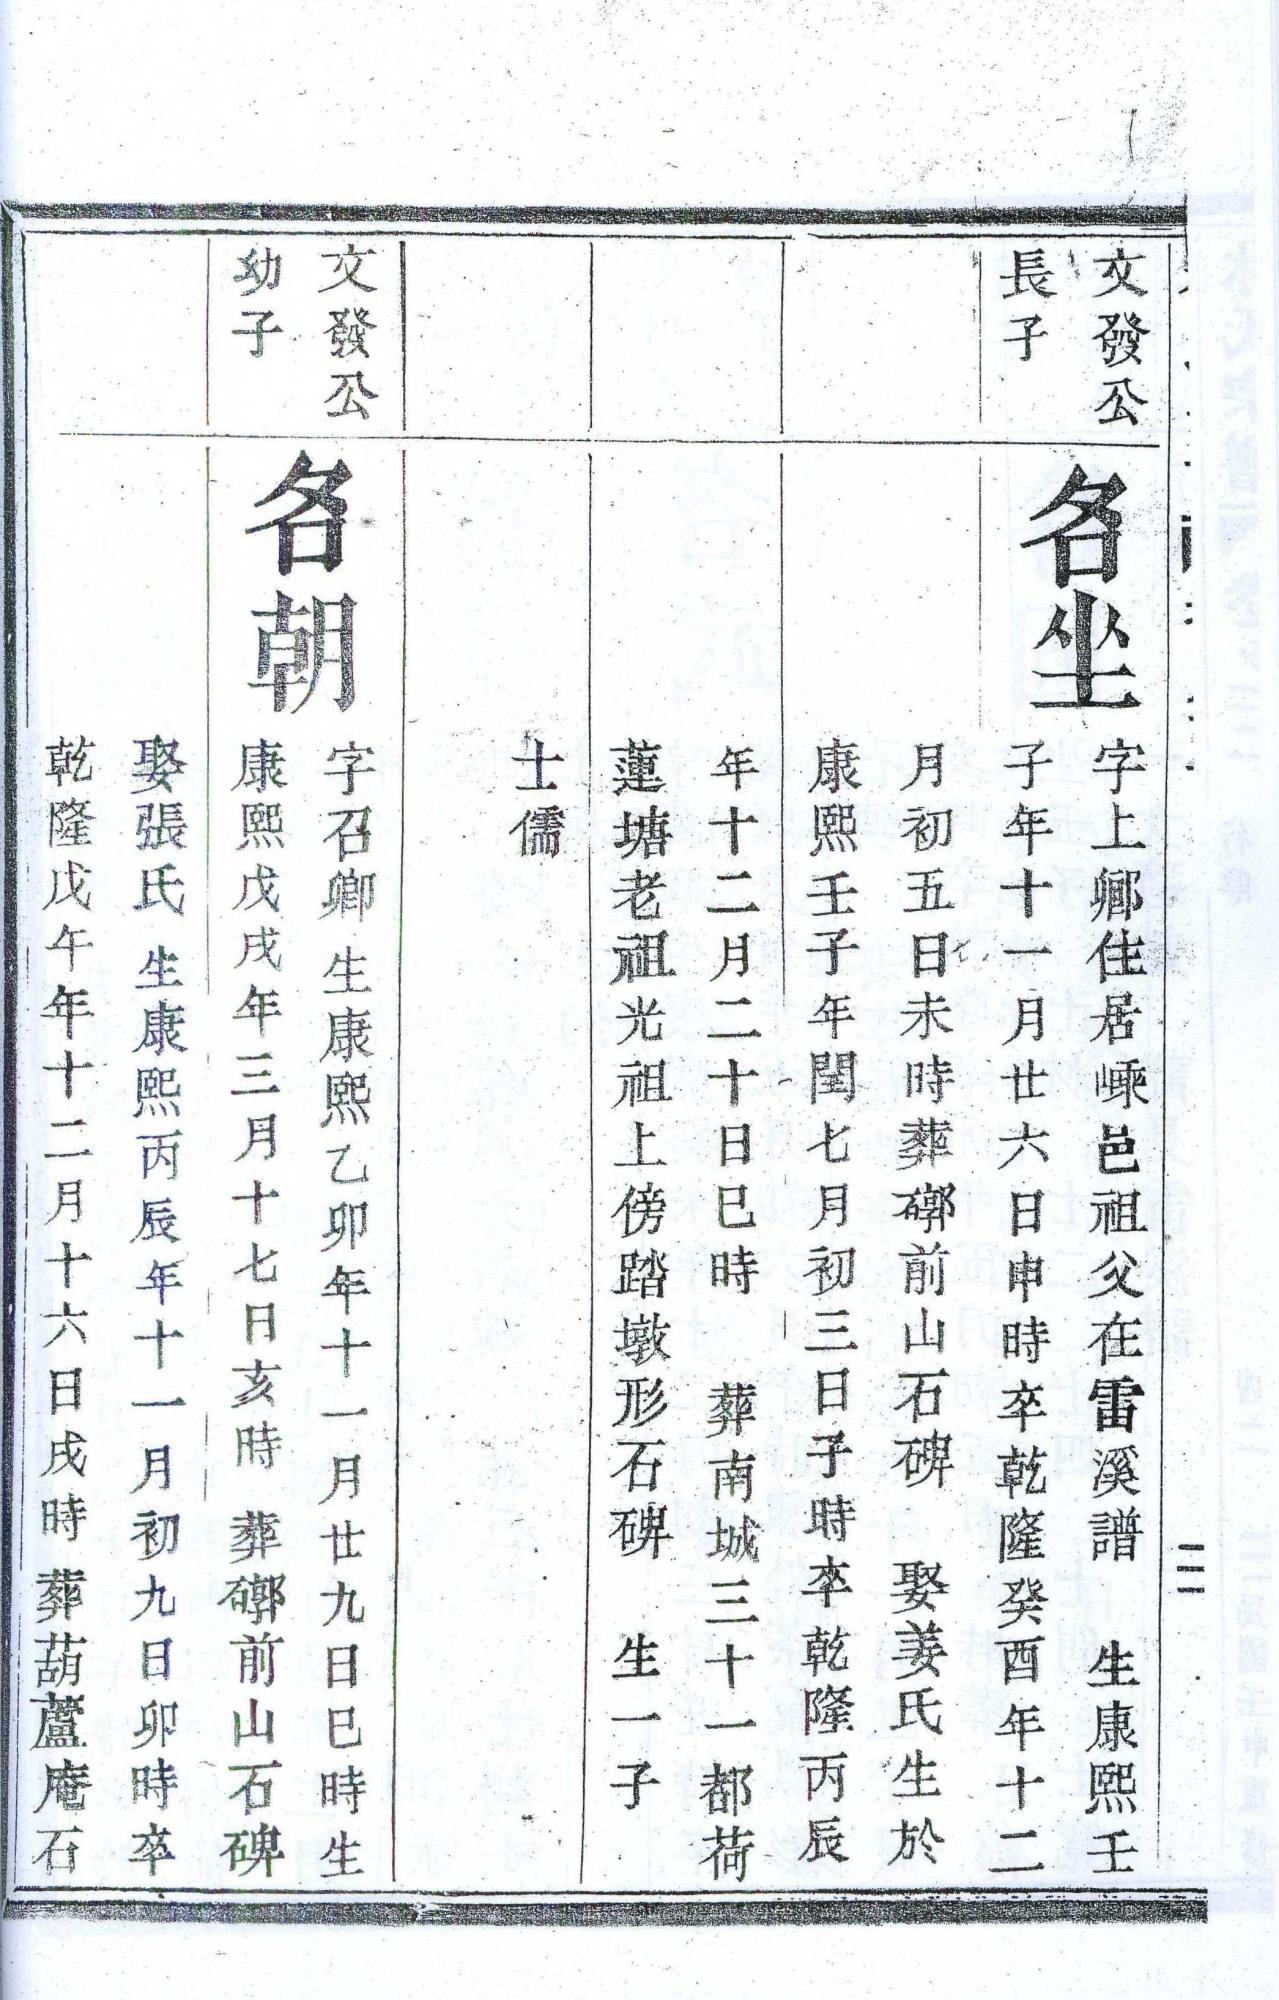 文發公
長子
名坐
字上卿住居嵊邑祖父在雷溪譜　生康熙壬
子年十一月廿六日申時卒乾隆癸酉年十二
月初五日未時葬磱前山石碑　娶姜氏生於
康熙壬子年閏七月初三日子時卒乾隆丙辰
年十二月二十日巳時　葬南城三十一都荷
蓮塘老祖光祖上傍踏墩形石碑　生一子
士儒
文發公
幼子
名朝
字召卿　生康熙乙卯年十一月廿九日巳時生
康熙戊戌年三月十七日亥時　葬磱前山石碑
娶張氏　生康熙丙辰年十一月初九日卯時卒
乾隆戊午年十二月十六日戌時　葬葫蘆庵石
三